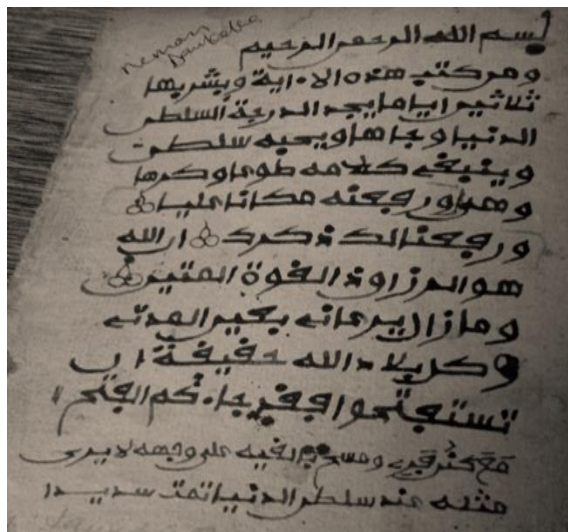 Neman
Daukaka
بسم الله الرحمن الرحيم
ومن كتب هذه الاية ويشربها
ثلاثين اياما يجد الدرجة السلطن
الدنيا وجاها ويحبه سلطن
وينبغى كلامه طوعا وكرها
ورفعنه مكانا عليا
ورفعنا لك ذكرك ان الله
هو الرزاق ذو القوة المتين
وما زال يرعانى بعين
الله حقيقة ان
تستفتحوا فقد جاءكم الفتح
ومسح على وجهه لا يرى
مثله عند سلطن الدنيا تمت سديدا